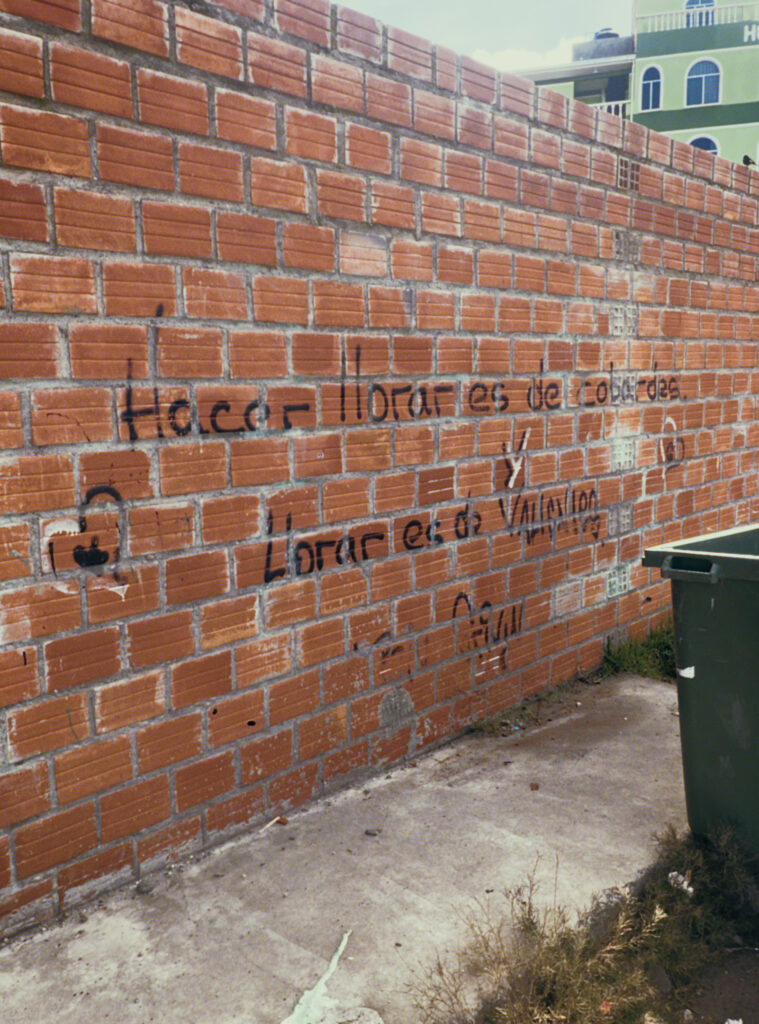 Hacer llorar es de cobardes.
y
Llorar es de VALIENTES